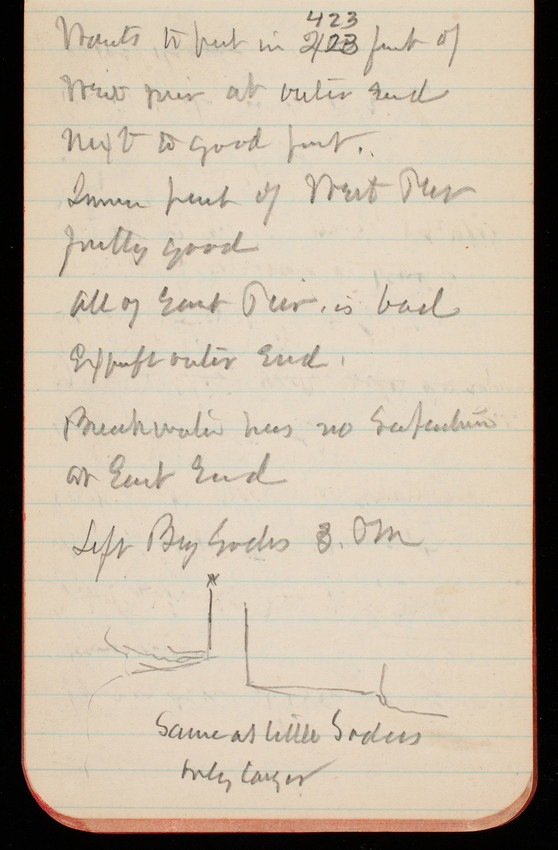 423
Wants to put in 2123 feet of
West pier at outer End
next to good part.
Inner part of West Pier
pretty good
All of East Pier is bad
Except outer End.
Breakwater has no
at East End
Left Big Sodus 3. PM
Same as little Sodus
only larger